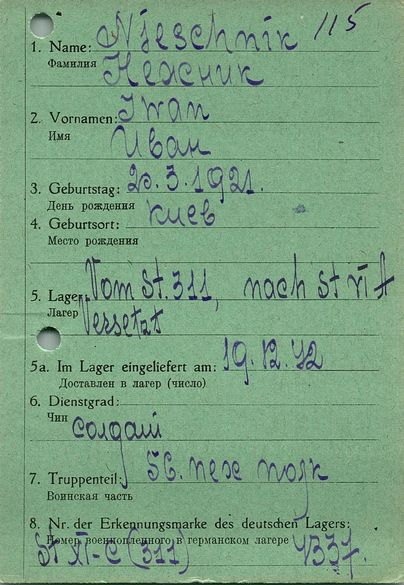 115
1. Name: Njeschnik
Фамилия Нежник
2. Vornamen: Iwan
Имя Иван
3. Geburtstag: 20.3.1921.
День рождения
4. Geburtsort: Киев
Место рождения
5. Lager Vom St. 311, nach St VI A
Лагер Versetzt
5a. Im Lager eingeliefert am: 19.12.42
Доставлен в лагер (число)
6. Dienstgrad:
Чин солдат
7. Truppenteil: 56. пех полк
Воинская часть
8. Nr. der Erkennungsmarke des deutschen Lagers:
Номер военнопленного в германском лагере
St XI-C (311) 4337.